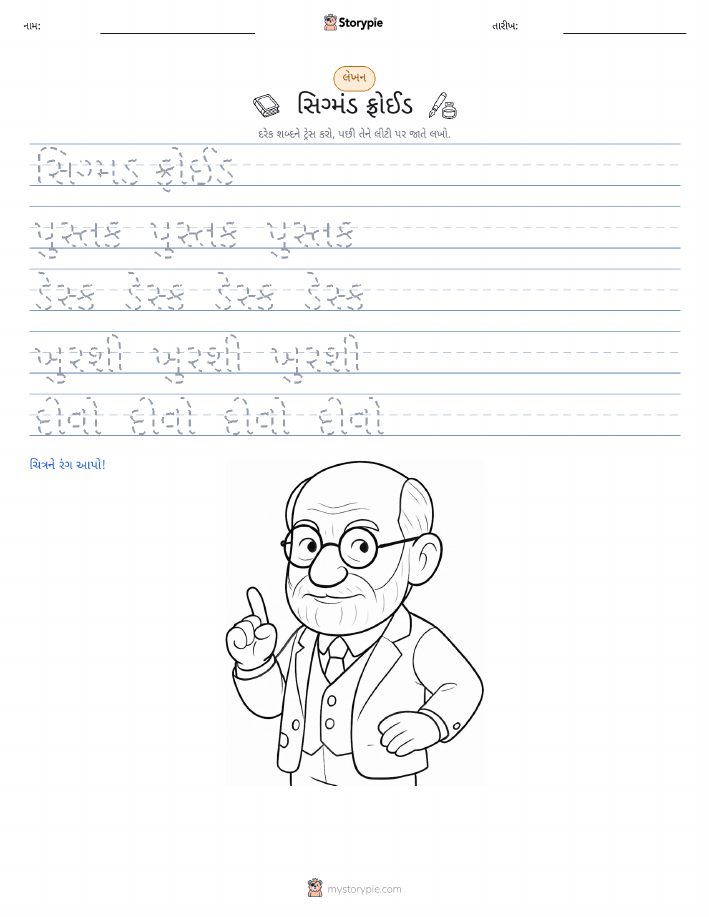 નામ: Storypie તારીખ:
લેખન
સિગ્મંડ ફ્રોઈડ
દરેક શબ્દને ટ્રેસ કરો, પછી તેને લીટી પર જાતે લખો.
સિગ્મંડ ફ્રોઈડ
પુસ્તક પુસ્તક પુસ્તક
ડેસ્ક ડેસ્ક ડેસ્ક ડેસ્ક
ખુરશી ખુરશી ખુરશી
દીવો દીવો દીવો દીવો
ચિત્રને રંગ આપો!
mystorypie.com